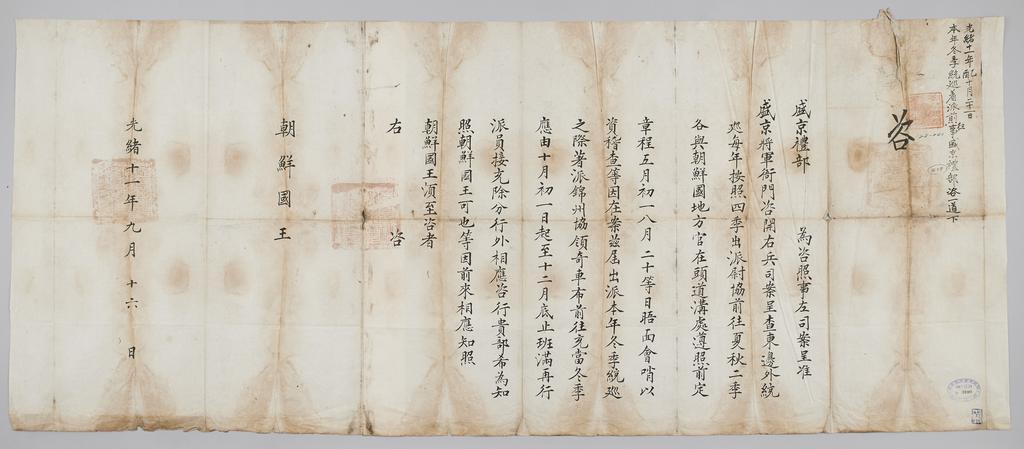 光緒十一年乙酉十月二十日
本年冬季統巡着派前事盛京禮部咨一道下
咨
盛京禮部 為咨照事左司案呈准
盛京將軍衙門咨開右兵司案呈查東邊外統
巡每年按照四季出派尉協前往夏秋二季
各與朝鮮國地方官在頭道溝處遵照前定
章程五月初一八月二十等日晤面會哨以
資稽查等因在案茲屆出派本年冬季統巡
之際著派錦州協領奇車布前往充當冬季
應由十月初一日起至十二月底止班滿再行
派員接充除分行外相應咨行貴部希為知
照朝鮮國王可也等因前來相應知照
朝鮮國王須至咨者
右 咨
朝鮮國王
光緒十一年九月 十六 日